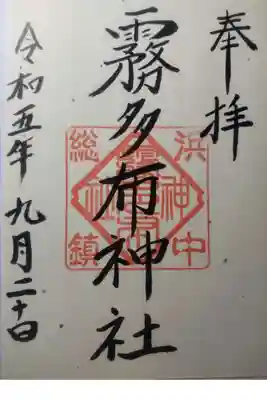 奉拝
霧多布神社
令和五年 九月二十日
浜中
神社
総鎮